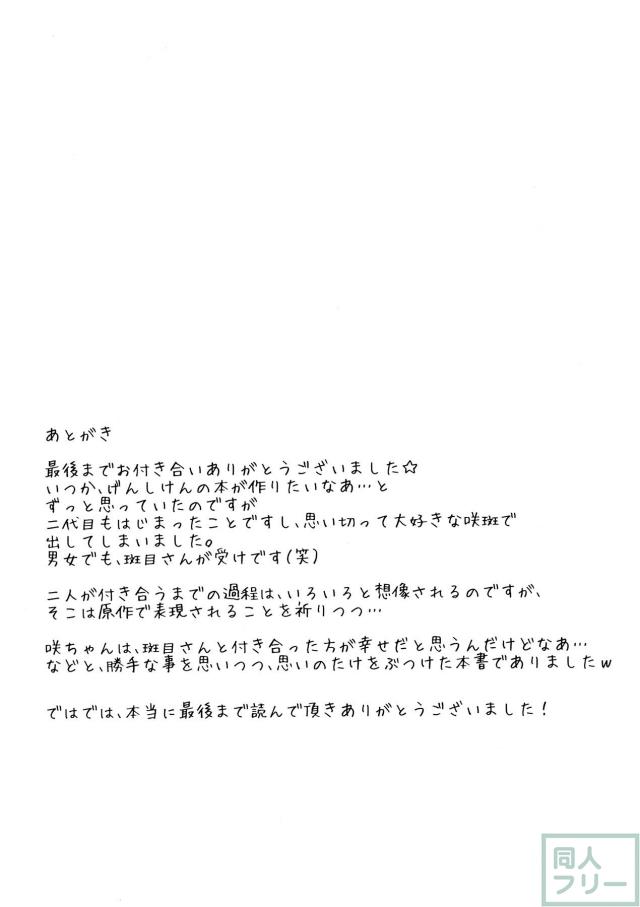 あとがき
最後までお付き合いありがとうございました☆
いつか、げんしけんの本が作りたいなあ…と
ずっと思っていたのですが
二代目もはじまったことですし、思い切って大好きな咲斑で
出してしまいました。
男女でも、斑目さんが受けです(笑)
二人が付き合うまでの過程は、いろいろと想像されるのですが、
そこは原作で表現されることを祈りつつ…
咲ちゃんは、斑目さんと付き合った方が幸せだと思うんだけどなあ…
などと、勝手な事を思いつつ、思いのたけをぶつけた本書でありましたw
ではでは、本当に最後まで読んで頂きありがとうございました!
同人
フリー